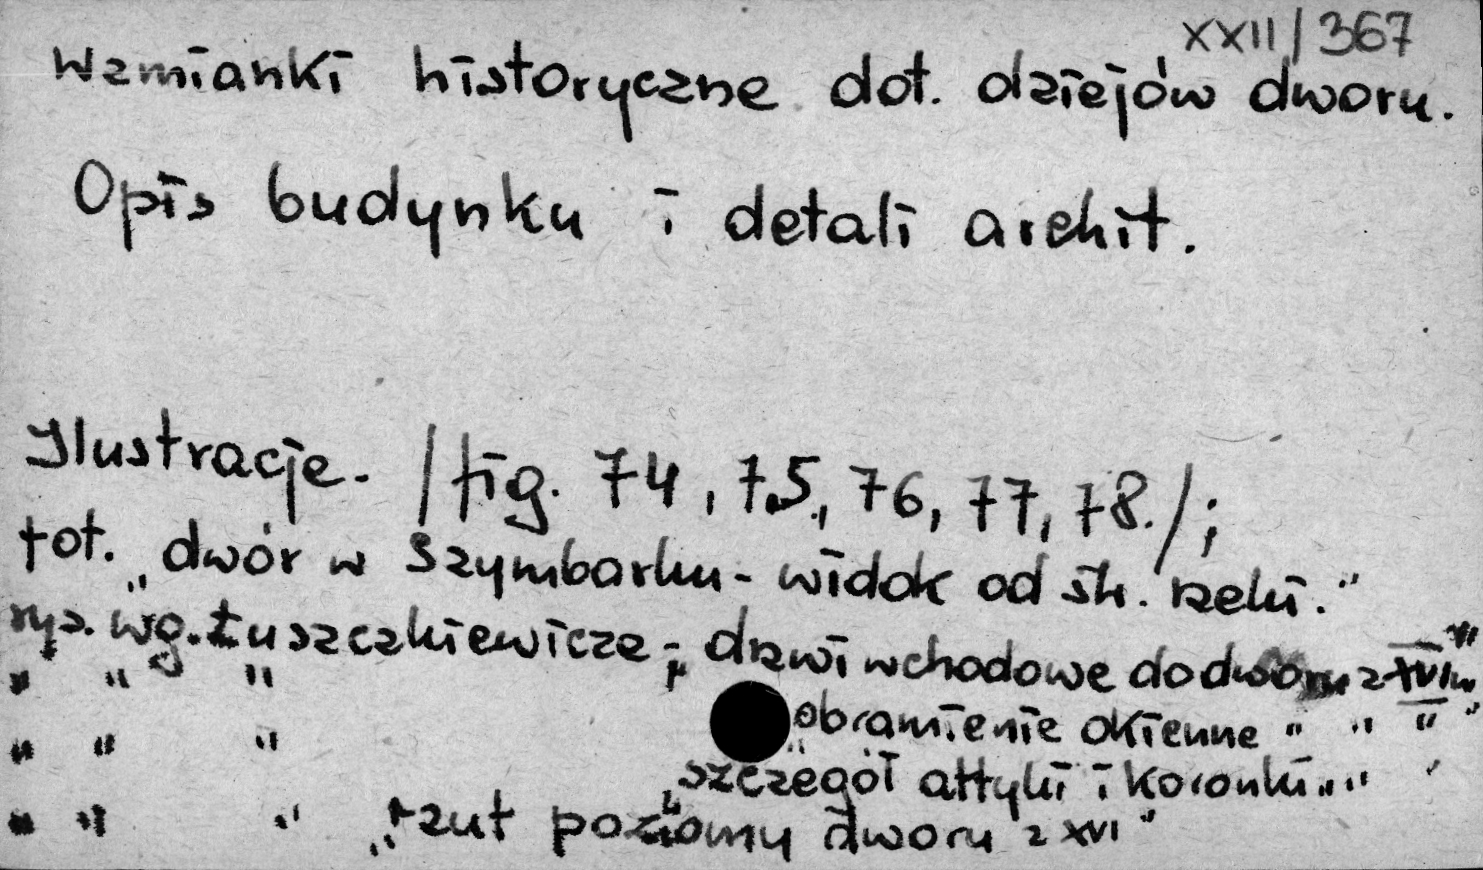 XXII/367
Wzmianki historyczne dot. dziejów dworu.
Opis budynku i detali archit.
Ilustracje. /fig. 74, 75, 76, 77, 78./;
fot. „dwór w Szymbarku - widok od str. rzeki."
rys. wg. Łuszczkiewicza; „drzwi wchodowe do dworu z XVI w"
" " " „obramienie okienne " " " "
" " " „szczegół attyki i koronki " " "
" " " „rzut poziomy dworu z XVI"